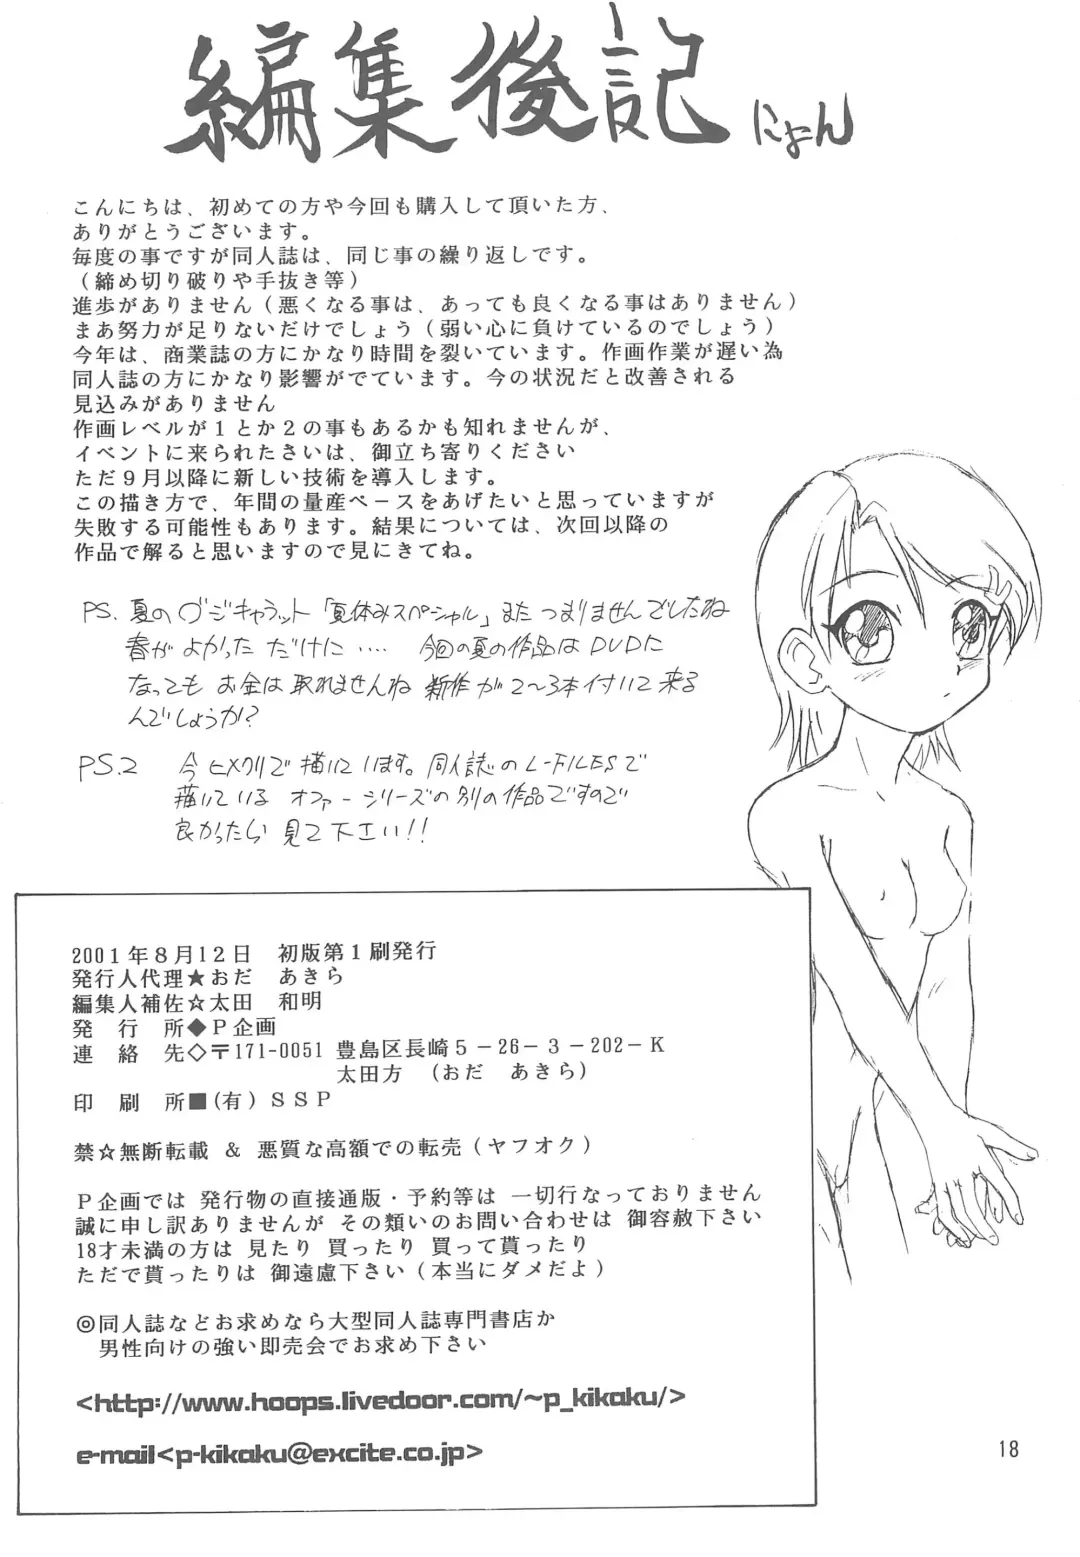 編集後記 にょん
こんにちは、初めての方や今回も購入して頂いた方、
ありがとうございます。
毎度の事ですが同人誌は、同じ事の繰り返しです。
（締め切り破りや手抜き等）
進歩がありません（悪くなる事は、あっても良くなる事はありません）
まあ努力が足りないだけでしょう（弱い心に負けているのでしょう）
今年は、商業誌の方にかなり時間を裂いています。作画作業が遅い為
同人誌の方にかなり影響がでています。今の状況だと改善される
見込みがありません
作画レベルが１とか２の事もあるかも知れませんが、
イベントに来られたさいは、御立ち寄りください
ただ９月以降に新しい技術を導入します。
この描き方で、年間の量産ペースをあげたいと思っていますが
失敗する可能性もあります。結果については、次回以降の
作品で解ると思いますので見にきてね。
PS. 夏のデジキャラット「夏休みスペシャル」またつまりませんでしたね
春がよかっただけに‥‥ 今回の夏の作品はDVDに
なってもお金は取れませんね 新作が2〜3本付いて来る
んでしょうか?
PS.2 今ヒメクリで描いています。同人誌のL-FILESで
描いているオファーシリーズの別の作品ですので
良かったら見て下さい!!
2001年８月12日 初版第１刷発行
発行人代理★おだ あきら
編集人補佐☆太田 和明
発 行 所◆Ｐ企画
連 絡 先◇〒171-0051 豊島区長崎５－26－３－202－Ｋ
太田方 （おだ あきら）
印 刷 所■(有）ＳＳＰ
禁☆無断転載 ＆ 悪質な高額での転売（ヤフオク）
Ｐ企画では 発行物の直接通版・予約等は 一切行なっておりません
誠に申し訳ありませんが その類いのお問い合わせは 御容赦下さい
18才未満の方は 見たり 買ったり 買って貰ったり
ただで貰ったりは 御遠慮下さい（本当にダメだよ）
◎同人誌などお求めなら大型同人誌専門書店か
男性向けの強い即売会でお求め下さい
<http://www.hoops.livedoor.com/~p_kikaku/>
e-mail<p-kikaku@excite.co.jp>
18